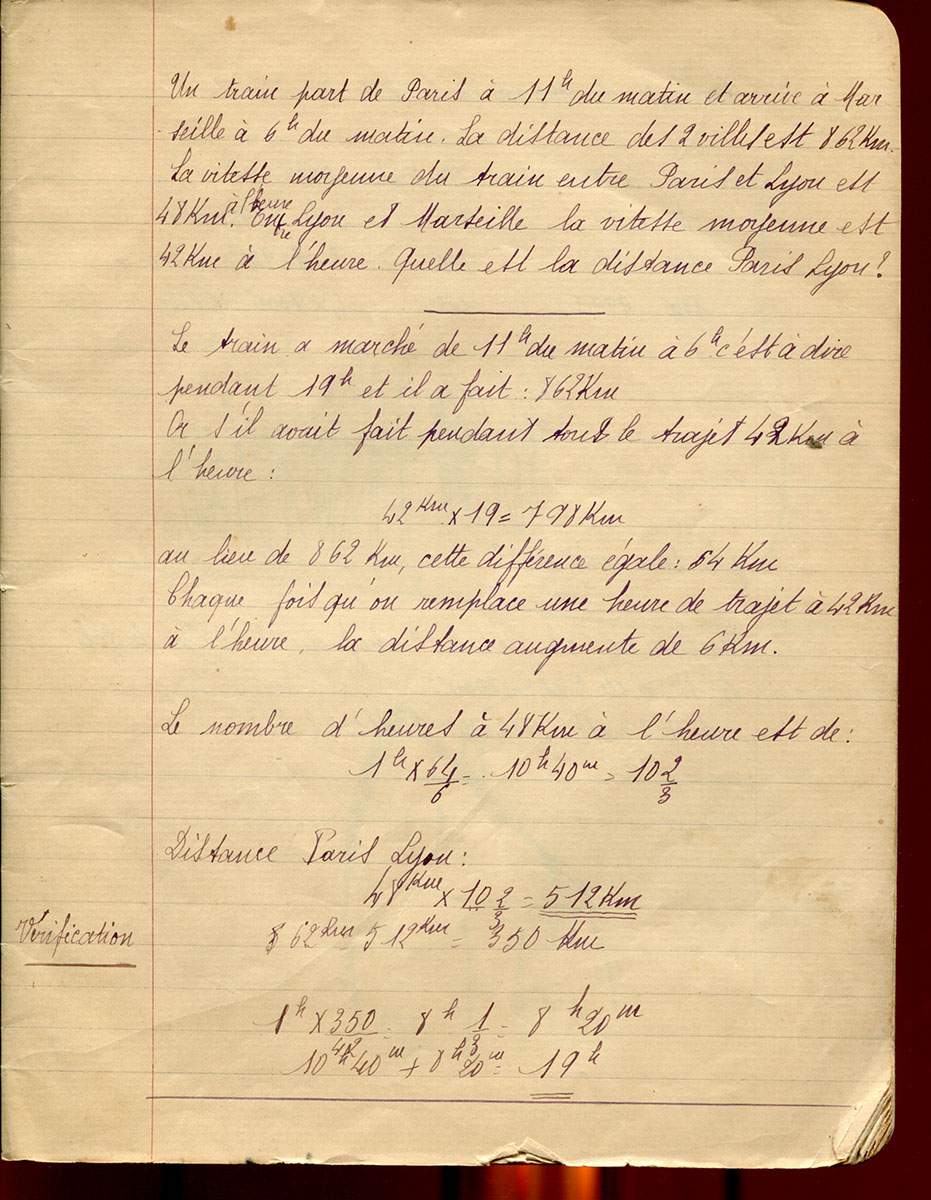 Un train part de Paris à 11h du matin et arrive à Mar
seille à 6h du matin. La distance des 2 villes est 862Km.
La vitesse moyenne du train entre Paris et Lyon est
48Km à l'heure. Entre Lyon et Marseille la vitesse moyenne est
42Km à l'heure. Quelle est la distance Paris Lyon?
Le train a marché de 11h du matin à 6h c'est à dire
pendant 19h et il a fait : 862Km
Or s'il avait fait pendant tout le trajet 42Km à
l'heure :
42Km × 19 = 798Km
au lieu de 862 Km, cette différence égale : 64 Km
Chaque fois qu'on remplace une heure de trajet à 42Km
à l'heure, la distance augmente de 6Km.
Le nombre d'heures à 48Km à l'heure est de :
1h × 64/6 = 10h40m = 10 2/3
Distance Paris Lyon :
48Km × 10 2/3 = 512Km
Vérification
862Km 512Km = 350 Km
1h × 350/42 = 8h 1/3 = 8h20m
10h40m + 8h20m = 19h